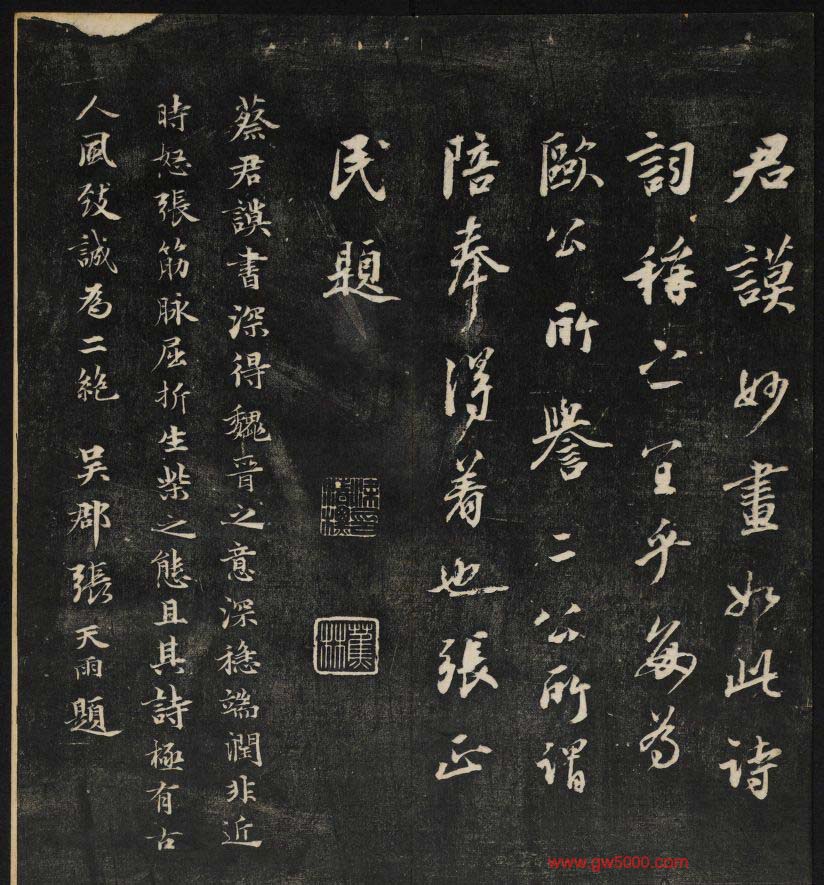 君謨妙畫如此詩
詞稱之宜乎每為
歐公所譽二公所謂
陪奉得着也張正
民題
蔡君謨書深得魏晉之意深穩端潤非近
時怒張筋脉屈折生柴之態且其詩極有古
人風致誠為二絶 吴郡張天雨題
蕉林
www.gw5000.com